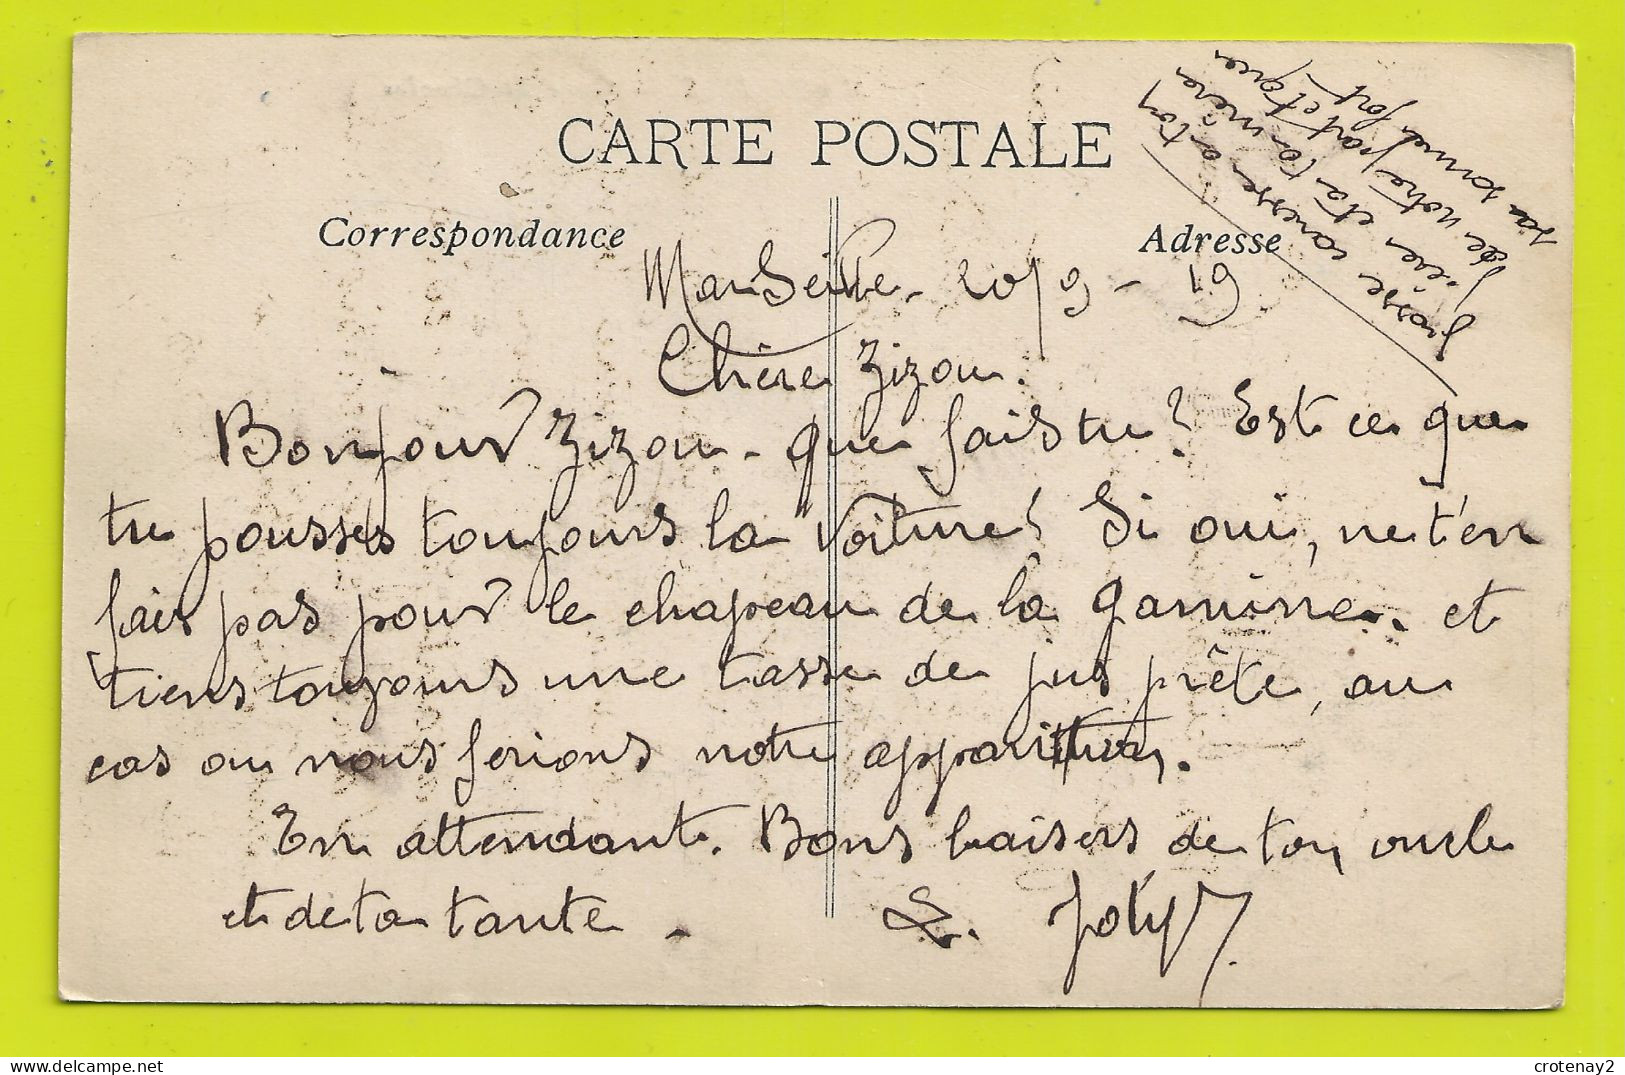 CARTE POSTALE
Correspondance
Adresse
Marseille. 20/9-19
Chère Zizou.
Bonjour Zizou. que fais tu? Est ce que
tu pousses toujours la voiture? Si oui, ne t'en
fais pas pour le chapeau de la gamine. et
tiens toujours une tasse de jus prête, au
cas ou nous ferions notre apparition.
En attendant. Bons baisers de ton oncle
et de ta tante. L. Joly
caresses a ton
et a ta mère
de notre part et que
sa santé
crotenay2